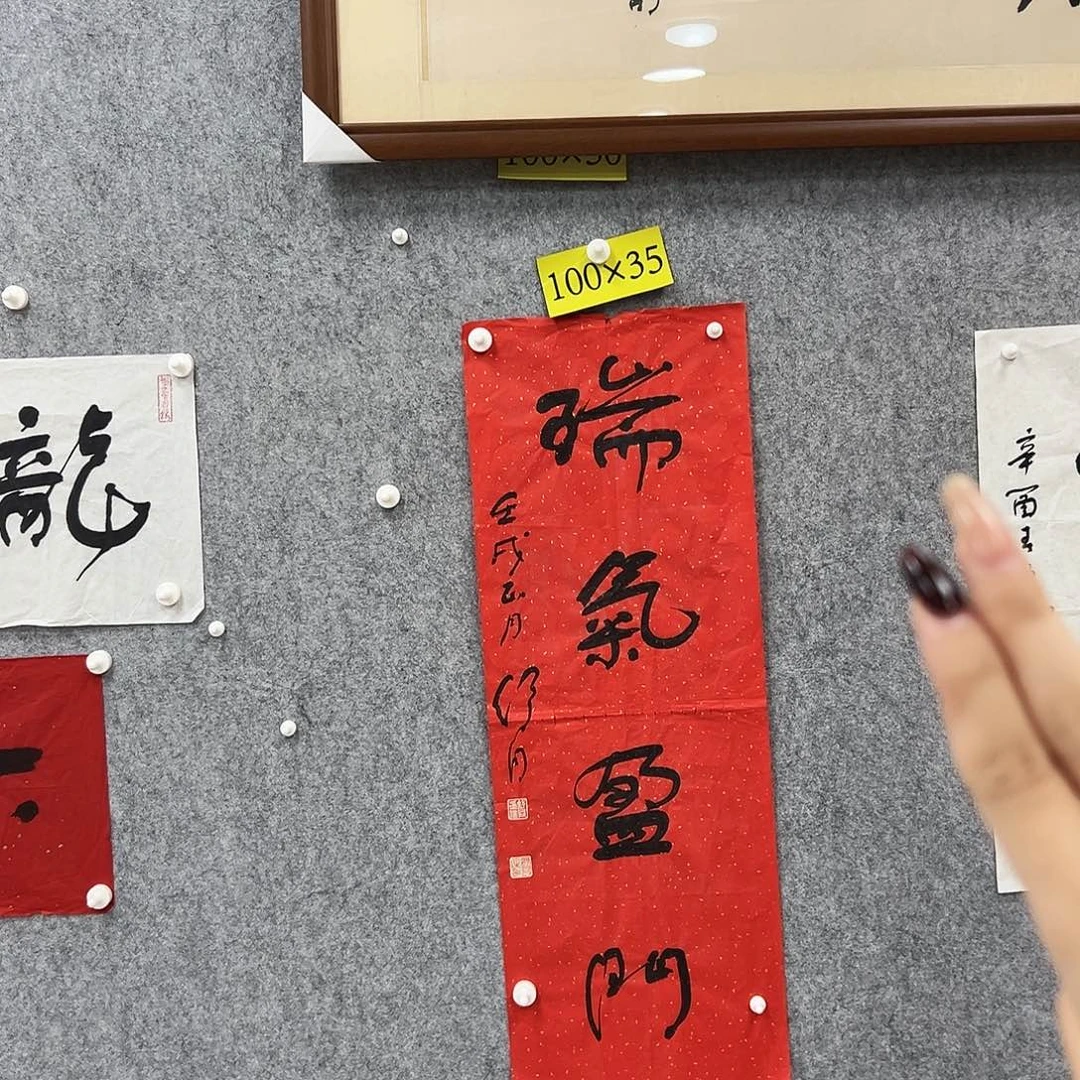 100×50
100×35
瑞氣盈門
壬戌正月
龍
辛酉